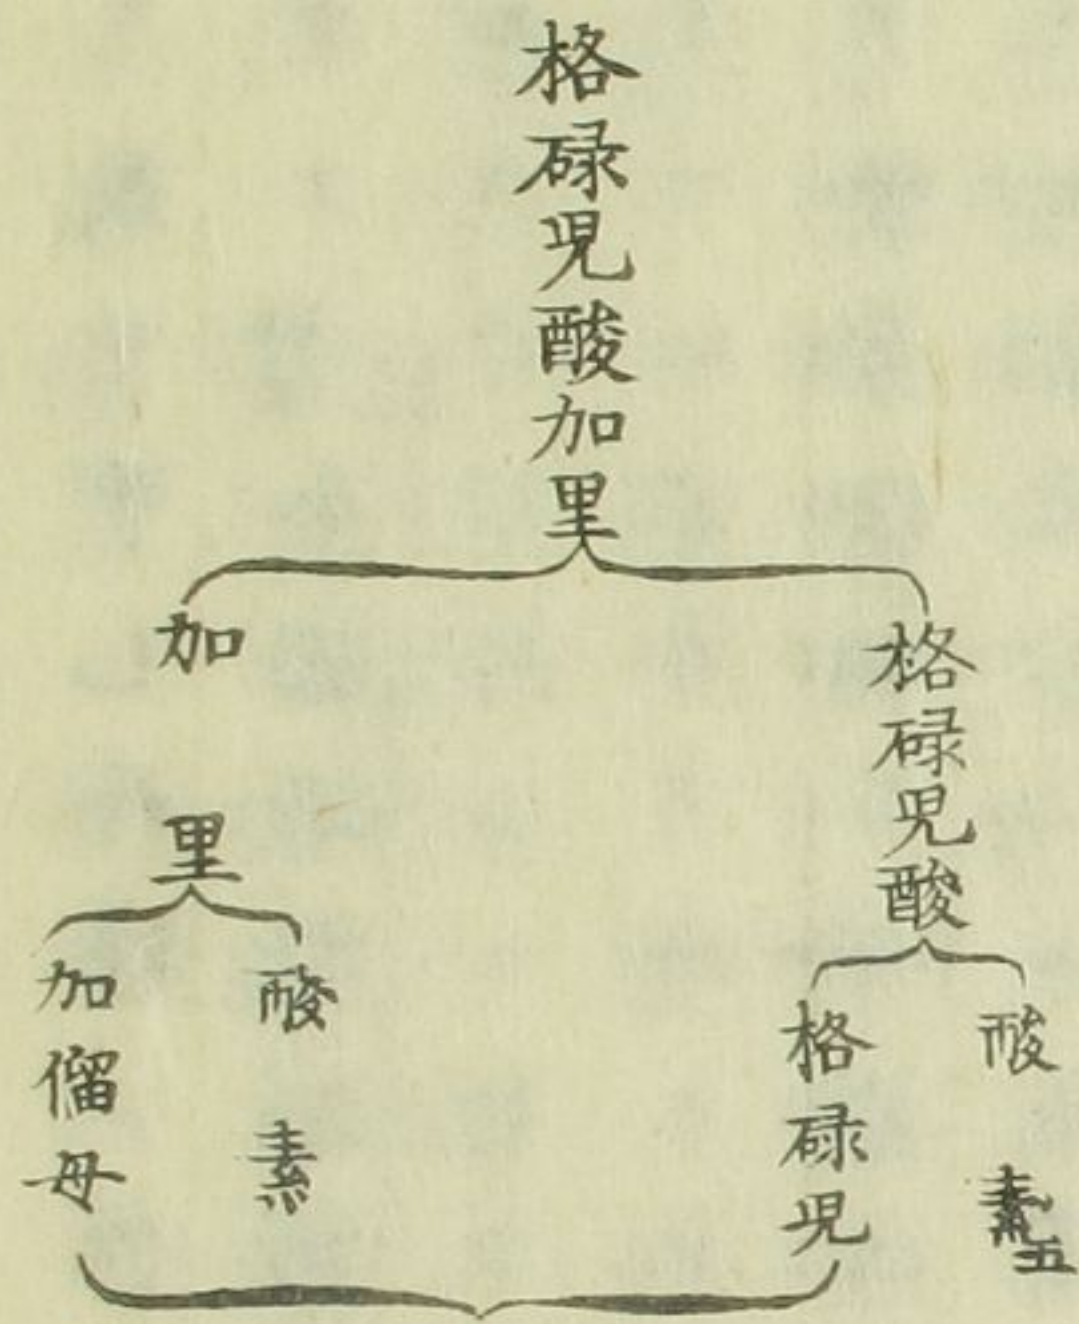 格碌児酸加里
格碌児酸
酸素五
格碌児
加里
酸素
加㽌母